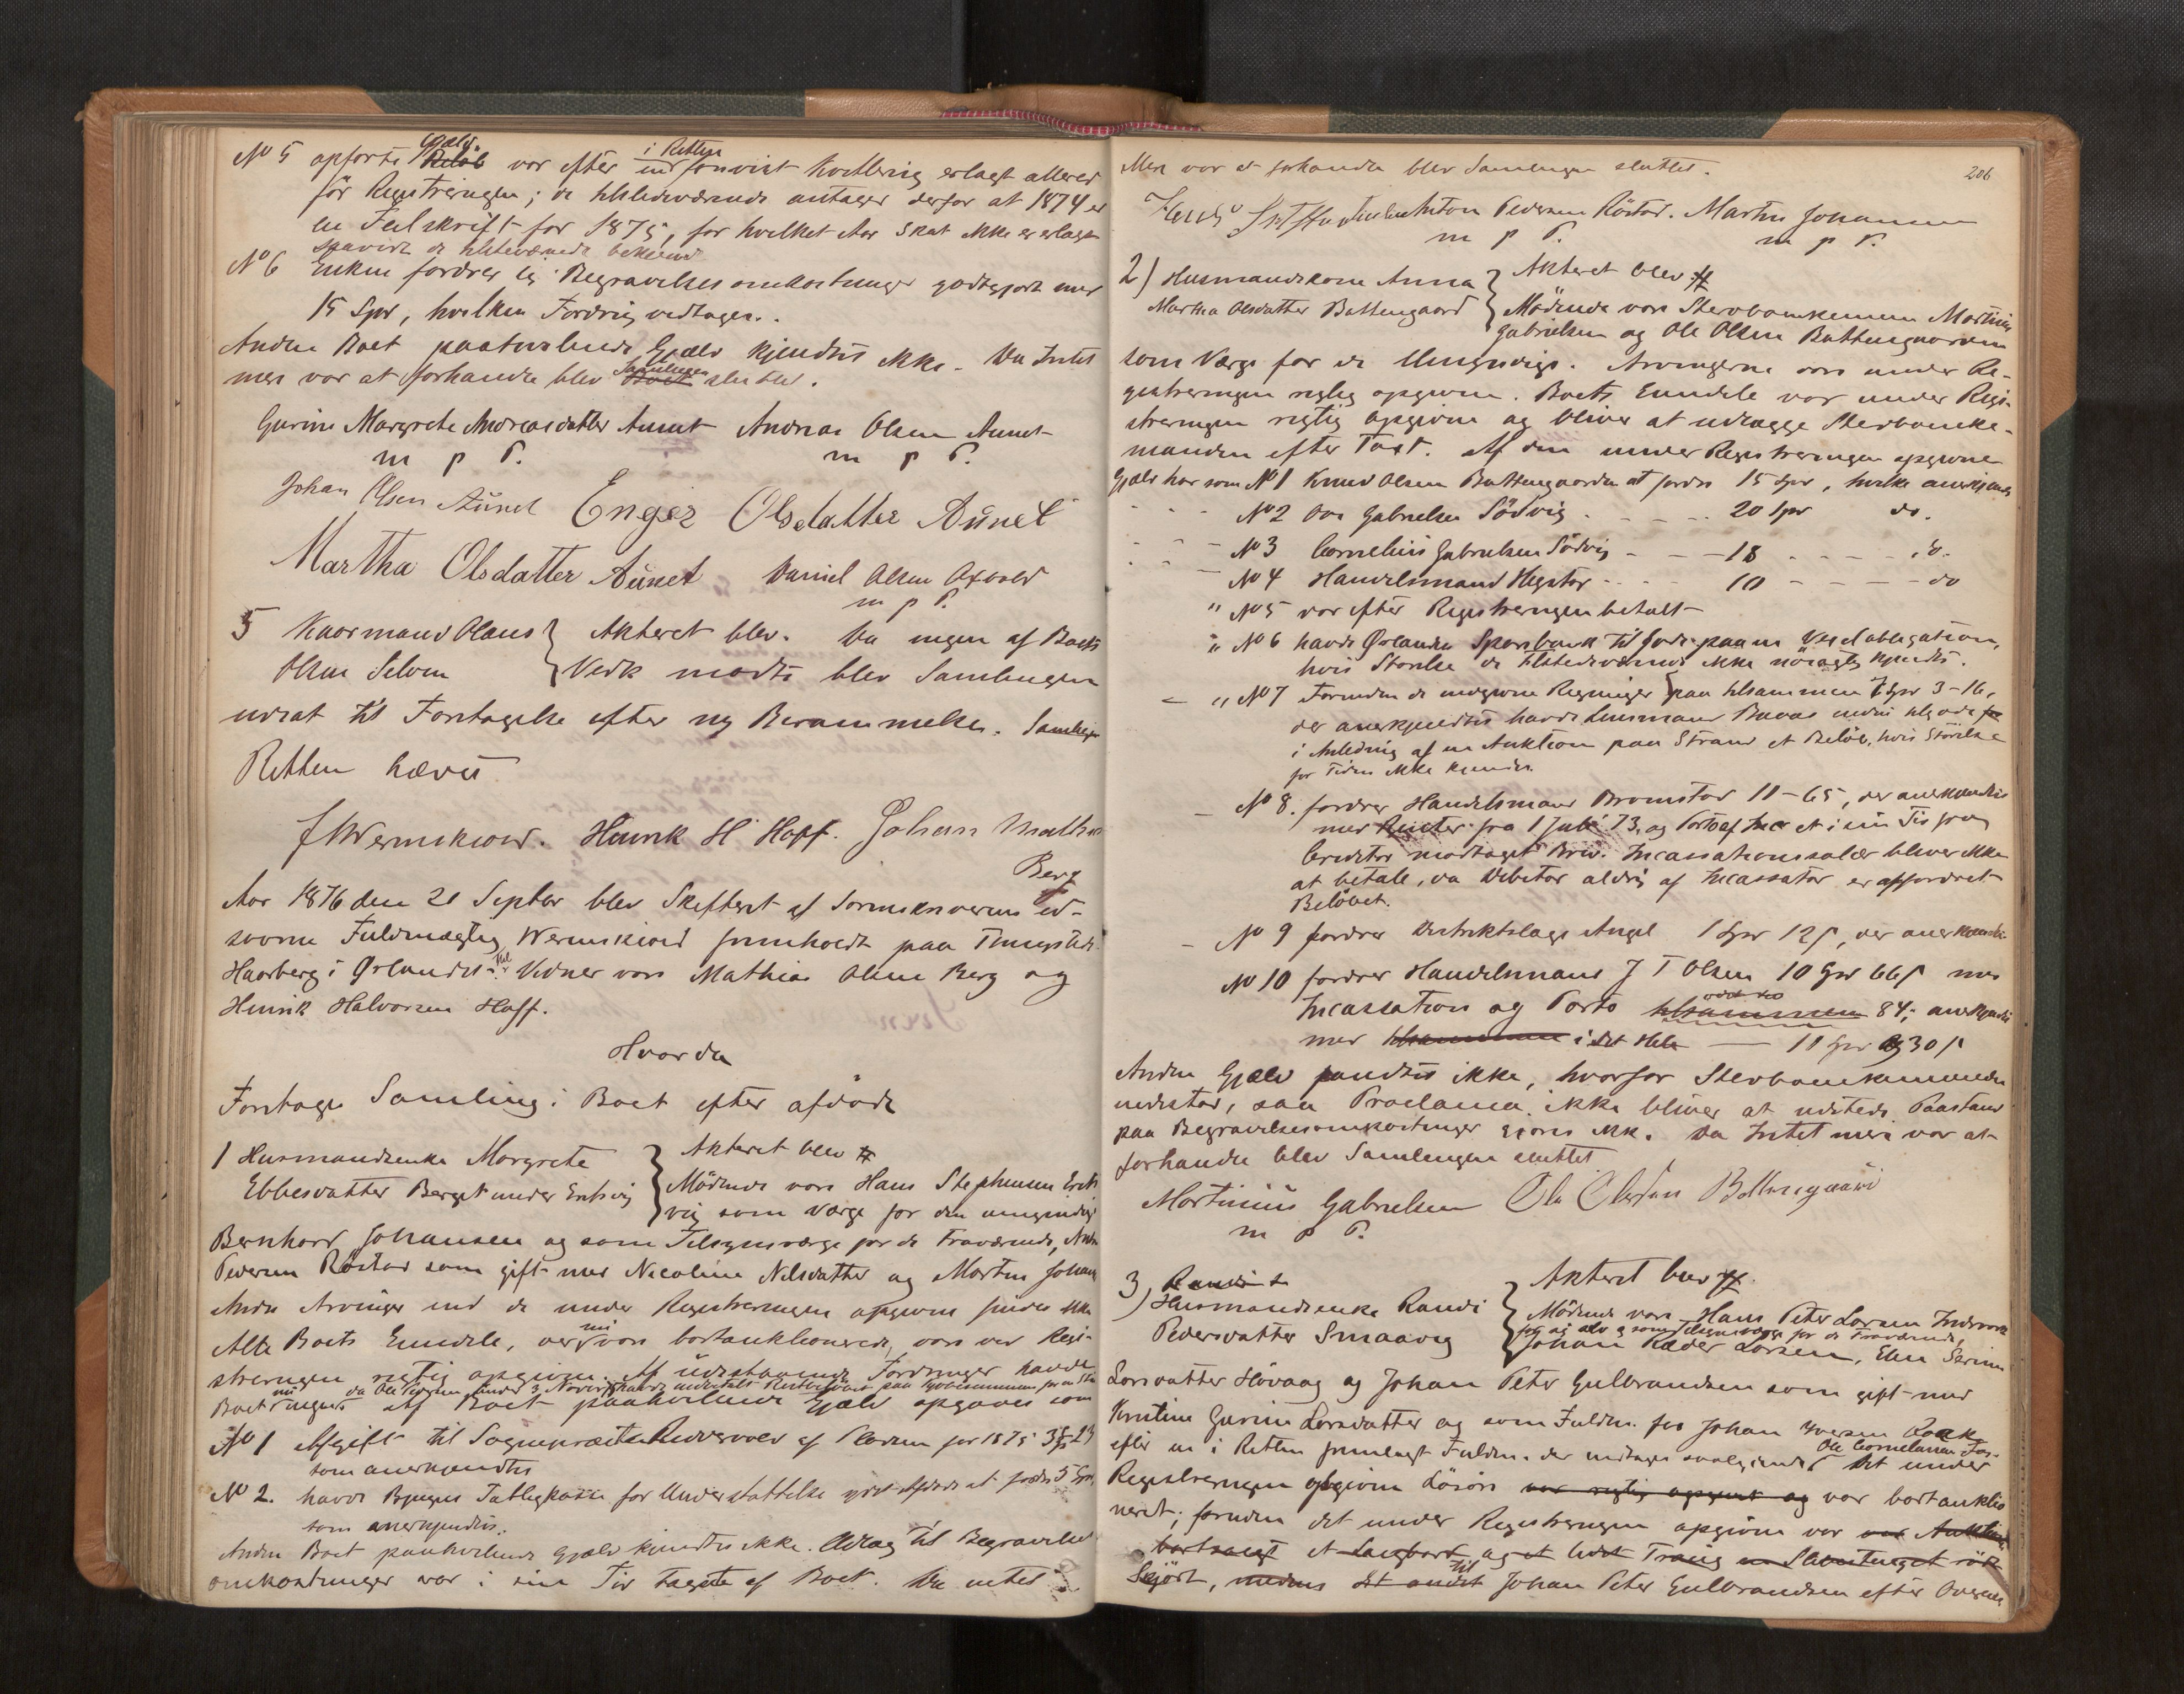 No 5 opførte Gjæld var efter i Retten fremvist Kvittering erlagt allered
før Registreringen; de tilstedeværende antager derfor at 1874 er
en Feilskrift for 1875, for hvilket Aar Skat ikke er erlagt
saavidt de tilstedeværende bekjendt
No 6 Enken fordrer sig Begravelsesomkostninger godtgjort med
15 Spd, hvilken Fordring vedtages.
Anden Boet paahvilende Gjæld kjendtes ikke. Da Intet
mere var at forhandle blev Samlingen sluttet.
Gurine Margrete Andreasdatter Aunet Andreas Olsen Aunet
m p P. m p P.
Johan Olsen Aunet Enger Olsdatter Aunet
Martha Olsdatter Aunet Daniel Olsen Oxvold
m p P.
5 Kaarmand Olaus Akteret blev. Da ingen af Boets
Olsen Selven Vedk mødte blev Samlingen
udsat til Foretagelse efter ny Berammelse. Samlingen
Retten hævet
Henrik H Hoff. Johan Mathias
Berg
Aar 1876 den 21 Septbr blev Skifteret af Sorenskriverens ed-
svorne Fuldmægtig Wernskiold fremholdt paa Thingstedet
Haarberg i Ørlandet. Vidner vare Mathias Olsen Berg og
Henrik Halvorsen Hoff.
Hvorda
Foretoges Samling i Boet efter afdøde
1 Husmandsenke Margrete Akteret blev
Ebbesdatter Berget under Ervig Mødende vare Hans Stephensen Erv
vig som Værge for den umyndige
Bernhard Johansen og som Tilsynsværge for de Fraværende,
Pedersen Røstad som gift med Nicoline Nilsdatter og Martin Johans
Andre Arvinger end de under Registreringen opgivne findes ikke
Alle Boets Eiendele, der nu vare bortauktionerede, vare ved Regi-
streringen rigtig opgivne. Af udestaaende Fordringer havde
Boet nu ingen Af Boet paahvilende Gjæld opgaves som
No 1 Afgift til Sogneprest Reddervold af Pladsen for 1875
som anerkjendtes
No 2. havde Bjugns Fattigkasse for Understøttelse ydet afdøde at fordre 5 Spd,
som anerkjendtes.
Anden Boet paahvilende Gjæld kjendtes ikke. Udlæg til Begravelses
omkostninger var i sin Tid tagete af Boet. Da intet
206
Mere var at forhandle blev Samlingen sluttet.
Anton Pedersen Røstad. Martin Johansen
m p P. m p P.
2) Husmandskone Anna Akteret blev
Martha Olsdatter Battengaard Mødende vare Stervboenkemand Martinus
Gabrielsen og Ole Olsen Battengaarden
som Værge for de Umyndige. Arvingerne vare under Re-
gistreringen rigtig opgivne. Boets Eiendele var under Regi-
streringen rigtig opgivne og bliver at udlægge Stervboenke-
manden efter Taxt. Af den under Registreringen opgivne
Gjæld har som No 1 Knud Olsen Battengaarden at fordre 15 Spd, hvilke anerkjend
No 2 Ove Gabrielsen Sødvig 20 Spd do.
No 3 Cornelius Gabrielsen Sødvig 18 do.
No 4 Handelsmand Hegstad 10 do
" No 5 var efter Registreringen betalt
" No 6 havde Ørlandets Sparebank til Gode paa en Vexelobligation,
hvis Størelse de tilstedeværende ikke nøiagtig kjendte.
" No 7 Foruden de indgivne Regninger paa tilsammen 7 Spd 3-16,
der anerkjendtes havde Lensmand Bavas endnu tilgode
i Anledning af en Auktion paa Strand et Beløb, hvis Størelse
for Tiden ikke kjendes.
No 8. fordrer Handelsmand Bromstad 11-65, der anerkjendtes
med Renter fra 1 Juli 73, og Porto af et i sin Tid fra
Creditor modtaget Brev. Incassationssalær bliver ikke
at betale, da Debitor aldrig af Incassator er affordret
Beløbet.
No 9 fordrer Distriktslæge Angel 1 Spd 12 s, der anerkjendtes
No 10 fordrer Handelsmand J T Olsen 10 Spd 66 s med
Incassation og Porto tilsammen 84; anerkjendt
med tilsammen i det Hele 11 Spd 30 s
Anden Gjæld fandtes ikke, hvorfor Stervboenkemanden
indestod, saa Proclama ikke bliver at udstede. Paastand
paa Begravelsesomkostninger gjøres ikke. Da Intet mere var at
forhandle blev Samlingen sluttet
Martinus Gabrielsen Ole Olesen Battengaard
m p P.
3) Randi
Husmandsenke Randi Akteret blev
Pedersdatter Smaavig Mødende vare Hans Peter Larsen
for sig selv og som Tilsynsværge for de Fraværende,
Johan Peder Larsen, Elen Serine
Larsdatter Høvaag og Johan Peter Gulbrandsen som gift med
Kristine Gurine Larsdatter og som Fuldm. for Johan Iversen
efter en i Retten fremlagt Fuldm. der indtages saalydende Ole Cornelausen
Det under
Registreringen opgivne Løsøre var rigtig opgivet og var bortauktio
neret; foruden det under Registreringen opgivne var
bortsolgt et og et lidet Traug
Skjørt, medens det andet Johan Peter Gulbrandsen efter